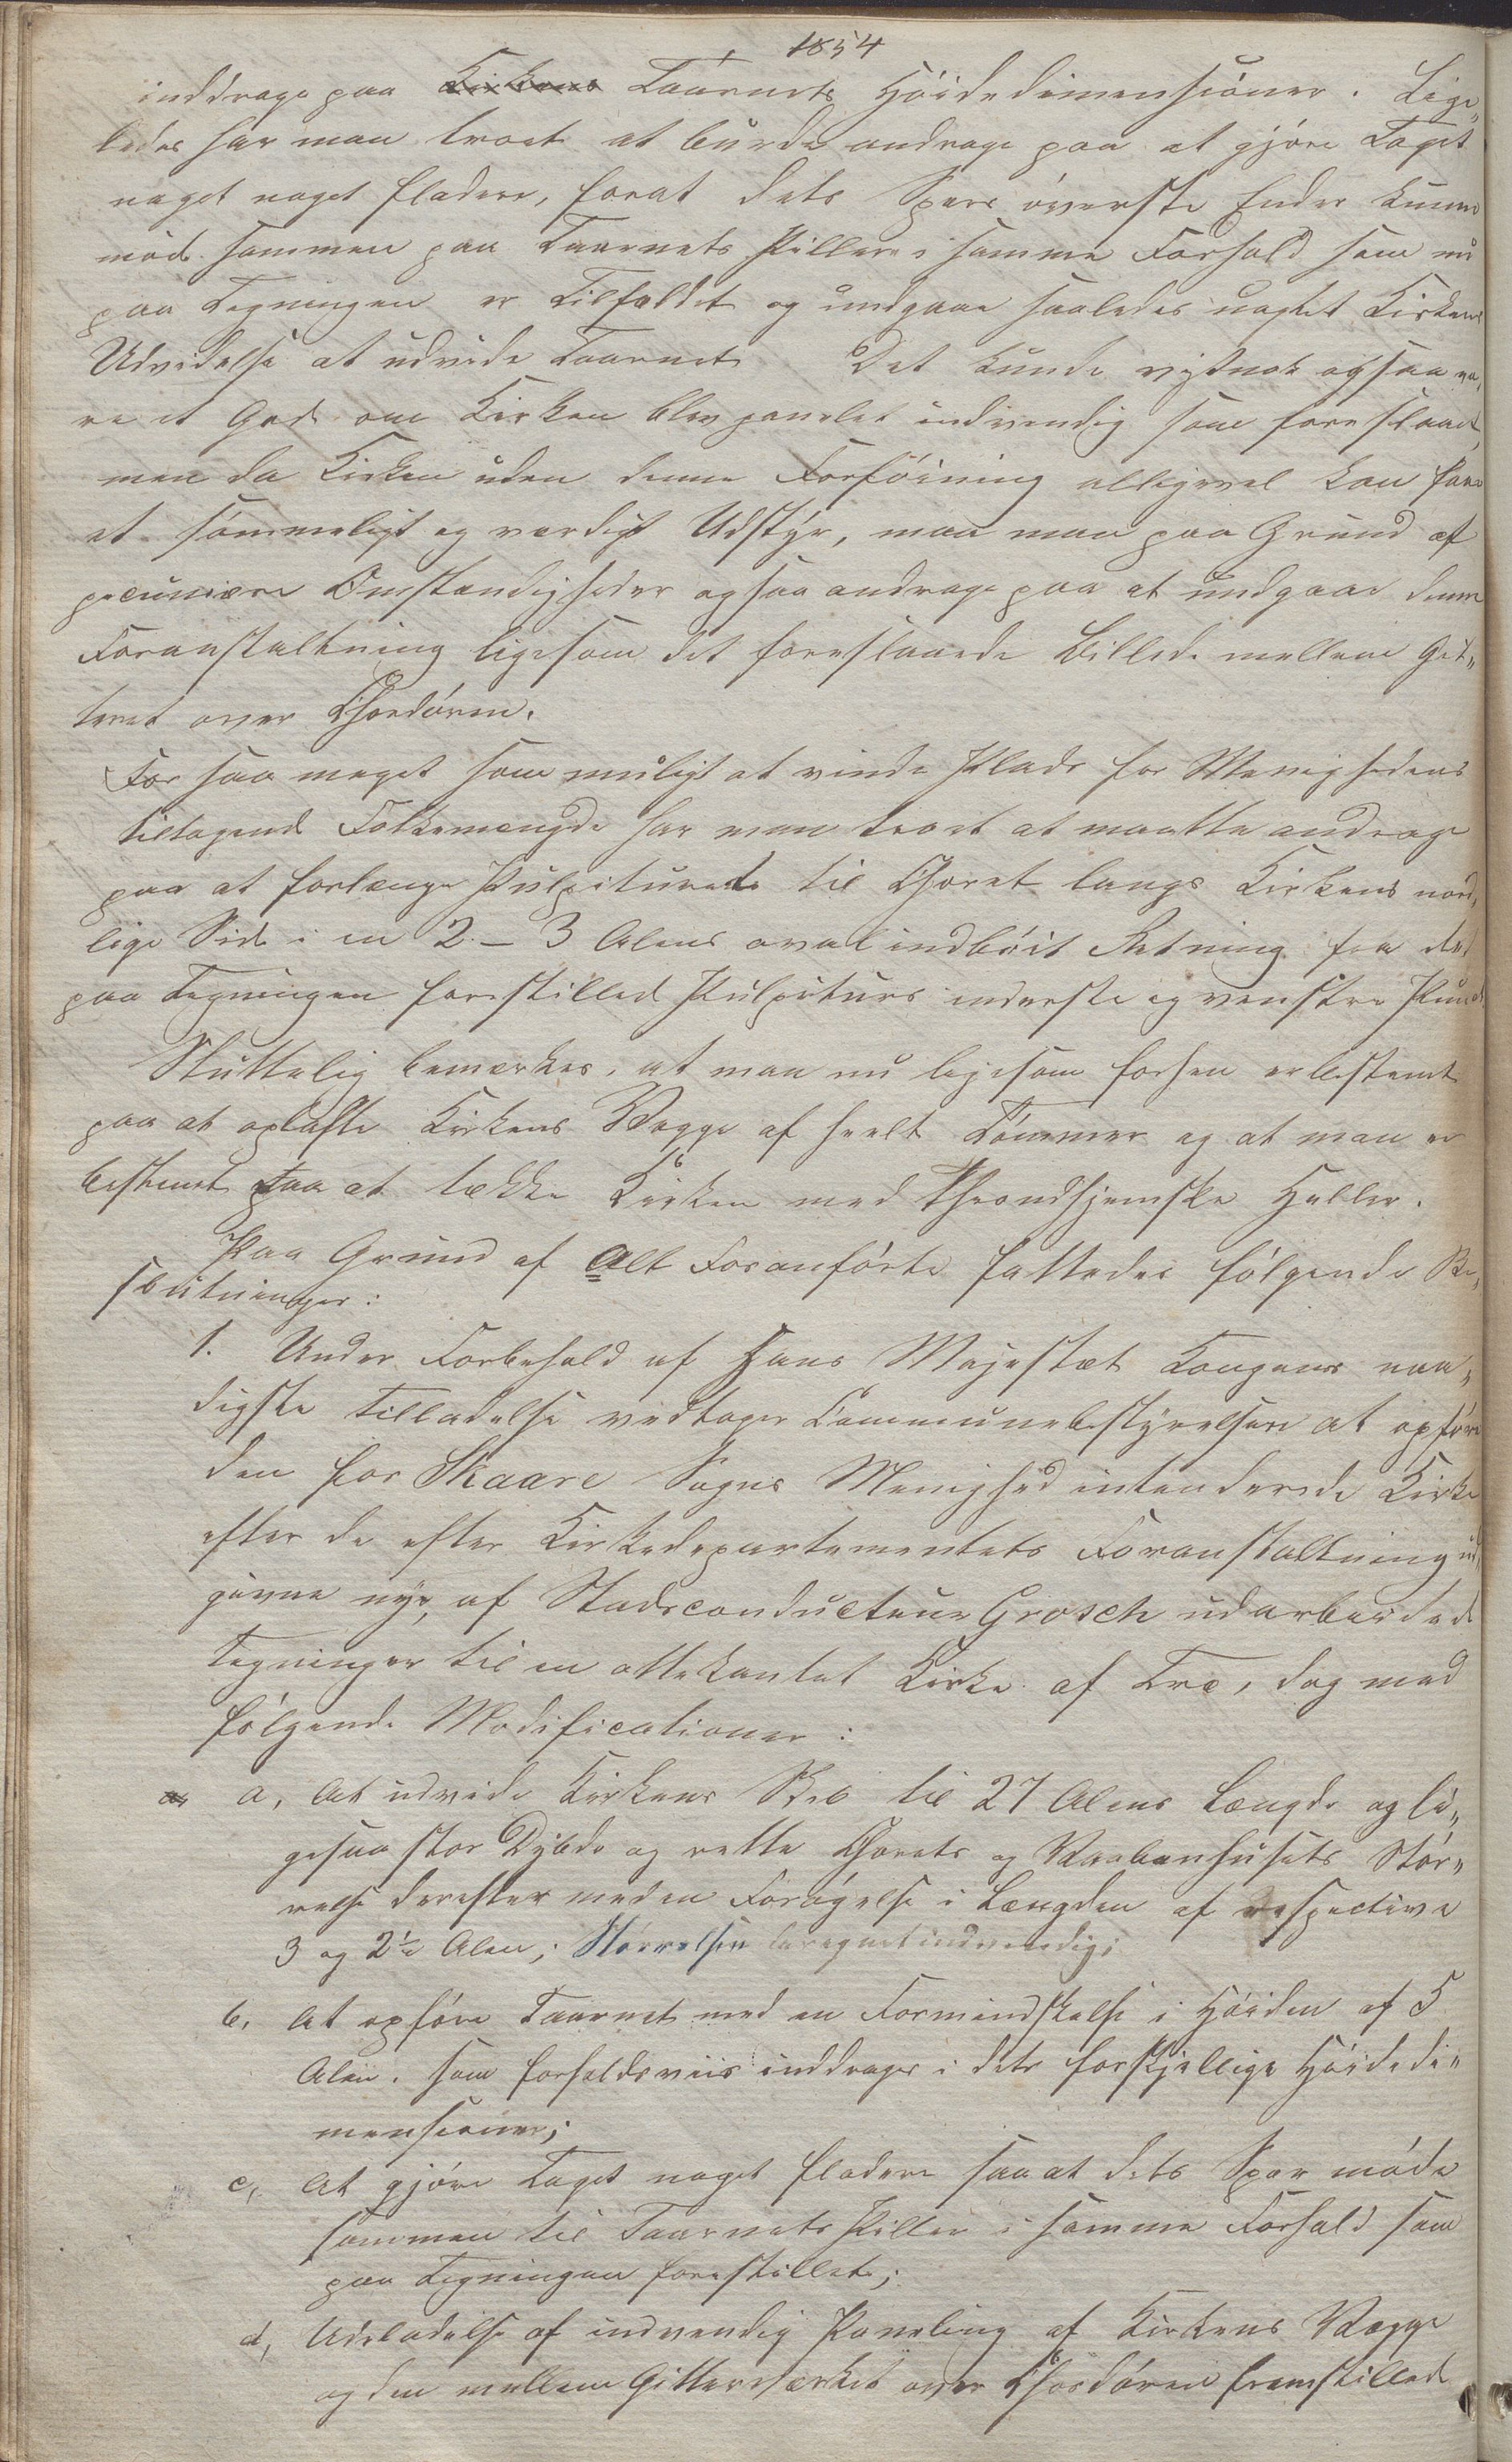 1854
inddrage paa Kirkens Taarnets Höidedimensioner. Lige„
ledes har man troet at burde andrage paa at gjöre Taget
noget noget fladere, forat dets Spers överste Ender kunne
möde sammen paa Taarnets Pillere i samme Forhold som nu
paa Tegningen er Tilfældet og undgaae saaledes uagtet Kirkens
Udvidelse at udvide Taarnet. Det kunde vistnok ogsaa væ„
re et Gode om Kirken blev panelet indvendig som foreslaaet,
men da Kirken uden denne Forföining alligevel kan faae
et sömmeligt og værdigt Udstyr, maa man paa Grund af
pecuniære Omstændigheder ogsaa andrage paa at undgaae denne
Foranstaltning ligesom det foreslaaede Billede mellem Git„
teret over Chordören.
For saa meget som muligt at vinde Plads for Menighedens
tiltagende Folkemængde har man troet at maatte andrage
paa at forlænge Pulpiturete til Choret langs Kirkens nord„
lige Side i en 2 - 3 Alens oval indböit Retning fra det
paa Tegningen forestillede Pulpiturs inderste og venstre Punct
Sluttelig bemærkes, at man nu ligesom forhen er bestemt
paa at oplafte Kirkens Vægge af heelt Tömmer og at man er
bestemt paa at tække Kirken med Throndhjemske Heller.
Paa Grund af Alt Foranförte fattedes fölgende Be„
slutninger:
1. Under Forbehold af Hans Majestæt Kongens naa„
digste Tilladelse vedtager Communebestyrelsen at opföre
den for Skaare Sogns Menighed intenderede Kirke
efter de efter Kirkedepartementets Foranstaltning ud
givne nye, af Stadsconducteur Grosch udarbeidede
Tegninger til en ottekantet Kirke af Træ, dog med
fölgende Modificationer:
a, At udvide Kirkens Skib til 27 Alens Længde og li„
gesaa stor Dybde og rette Chorets og Vaabenhusets Stör„
relse derefter med en Forögelse i Længden af respective
3 og 2½ Alen; Störrelsen beregnet indvendig;
b, At opföre Taarnet med en Formindskelse i Höiden af 5
Alen, som forholdsviis inddrages i dets forskjellige Höidedi„
mensioner;
c, At gjöre Taget noget fladere saa at dets Sper möde
sammen til Taarnets Piller i samme Forhold som
paa Tegningen forestillet;
d, Udeladelse af indvendig Paneling af Kirkens Vægge
og den mellem Gitterværket over Chordören fremstillede